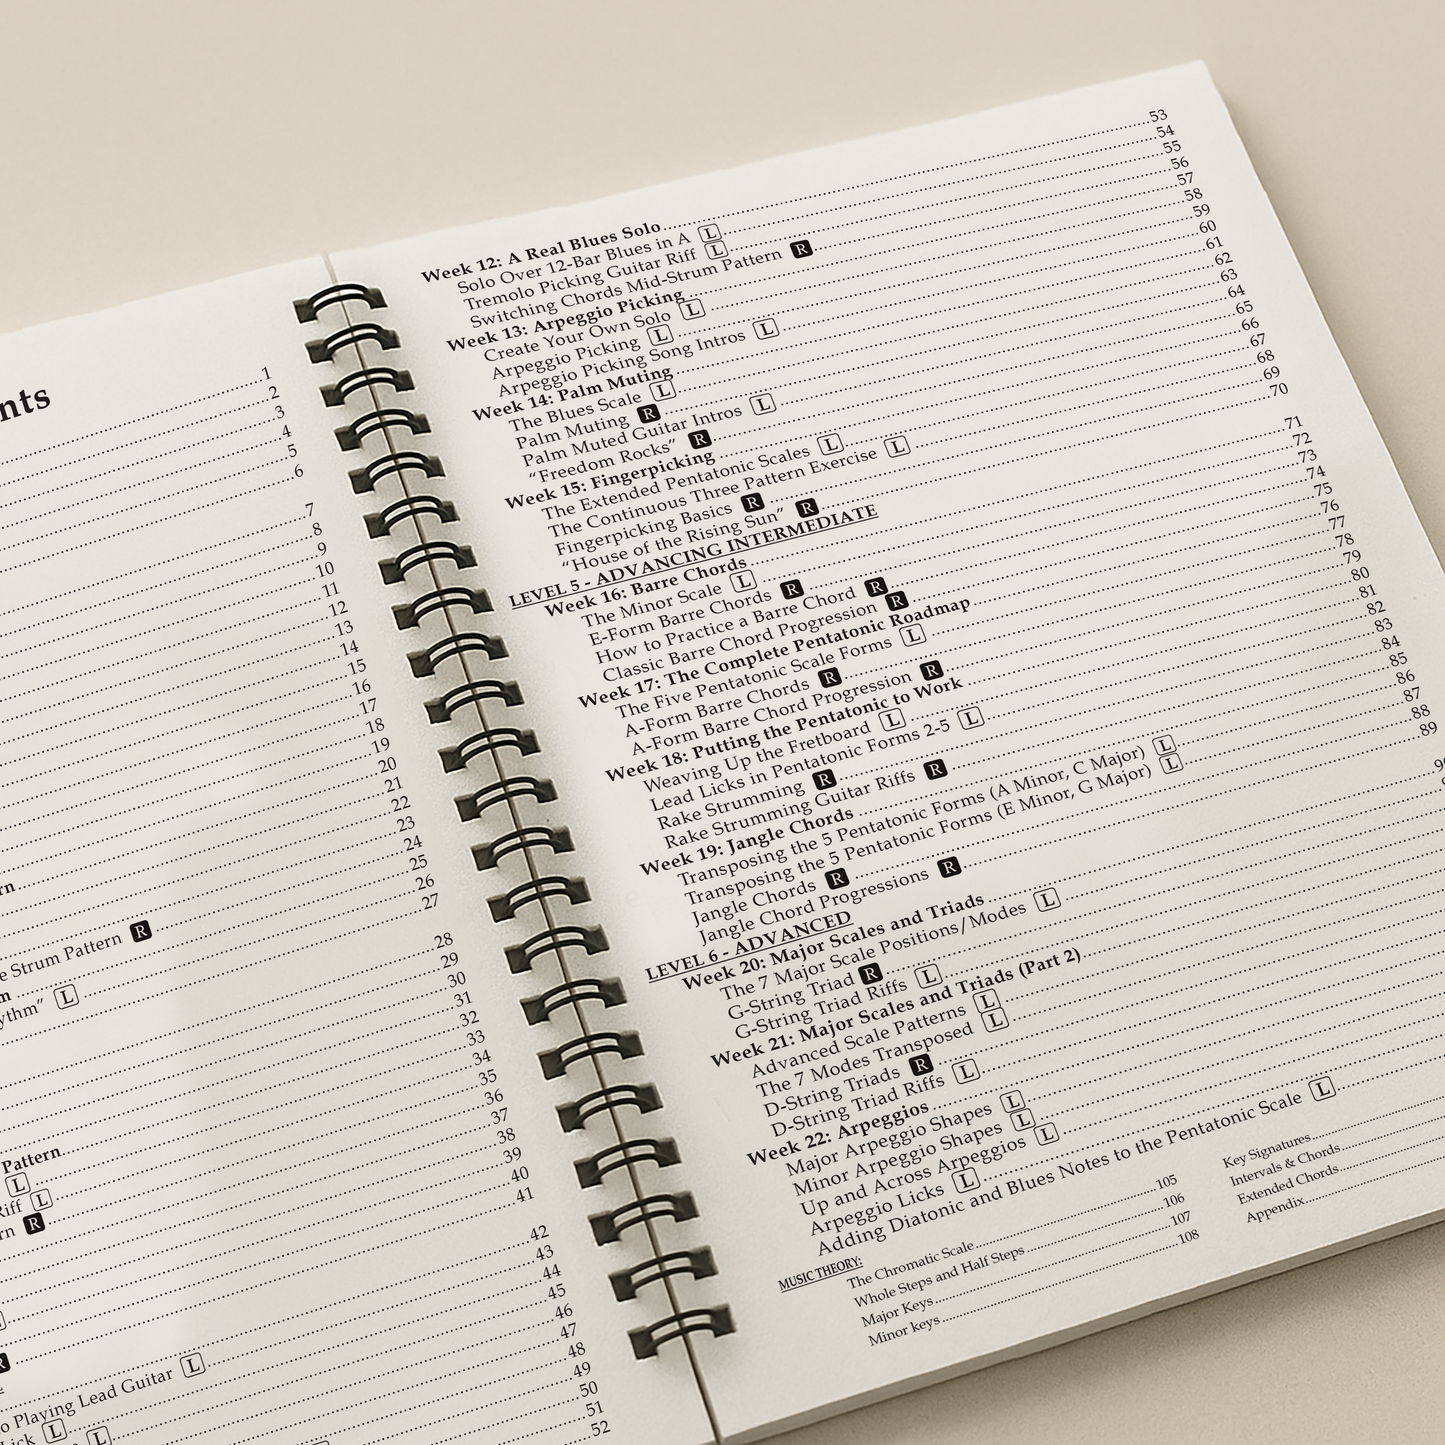 nts
1
2
3
4
5
6
7
8
9
10
11
12
13
14
15
16
17
18
19
20
21
22
23
24
25
26
27
Strum Pattern R
28
29
30
31
32
33
34
35
36
37
38
39
40
41
Pattern
L
L
R
42
43
44
45
46
47
48
49
50
51
52
Playing Lead Guitar L
L
L
Week 12: A Real Blues Solo 53
Solo Over 12-Bar Blues in A L 54
Tremolo Picking Guitar Riff L 55
Switching Chords Mid-Strum Pattern R 56
Week 13: Arpeggio Picking 57
Create Your Own Solo L 58
Arpeggio Picking L 59
Arpeggio Picking Song Intros L 60
Week 14: Palm Muting 61
The Blues Scale L 62
Palm Muting R 63
Palm Muted Guitar Intros L 64
“Freedom Rocks” R 65
Week 15: Fingerpicking 66
The Extended Pentatonic Scales L 67
The Continuous Three Pattern Exercise L 68
Fingerpicking Basics R 69
“House of the Rising Sun” R 70
LEVEL 5 - ADVANCING INTERMEDIATE
Week 16: Barre Chords 71
The Minor Scale L 72
E-Form Barre Chords R 73
How to Practice a Barre Chord R 74
Classic Barre Chord Progression R 75
Week 17: The Complete Pentatonic Roadmap 76
The Five Pentatonic Scale Forms L 77
A-Form Barre Chords R 78
A-Form Barre Chord Progression R 79
Week 18: Putting the Pentatonic to Work 80
Weaving Up the Fretboard L 81
Lead Licks in Pentatonic Forms 2-5 L 82
Rake Strumming R 83
Rake Strumming Guitar Riffs R 84
Week 19: Jangle Chords 85
Transposing the 5 Pentatonic Forms (A Minor, C Major) L 86
Transposing the 5 Pentatonic Forms (E Minor, G Major) L 87
Jangle Chords R 88
Jangle Chord Progressions R 89
LEVEL 6 - ADVANCED
Week 20: Major Scales and Triads
The 7 Major Scale Positions/Modes L
G-String Triad R
G-String Triad Riffs L
Week 21: Major Scales and Triads (Part 2)
Advanced Scale Patterns L
The 7 Modes Transposed L
D-String Triads R
D-String Triad Riffs L
Week 22: Arpeggios
Major Arpeggio Shapes L
Minor Arpeggio Shapes L
Up and Across Arpeggios L
Arpeggio Licks L
Adding Diatonic and Blues Notes to the Pentatonic Scale L
MUSIC THEORY:
The Chromatic Scale 105
Whole Steps and Half Steps 106
Major Keys 107
Minor keys 108
Key Signatures
Intervals & Chords
Extended Chords
Appendix